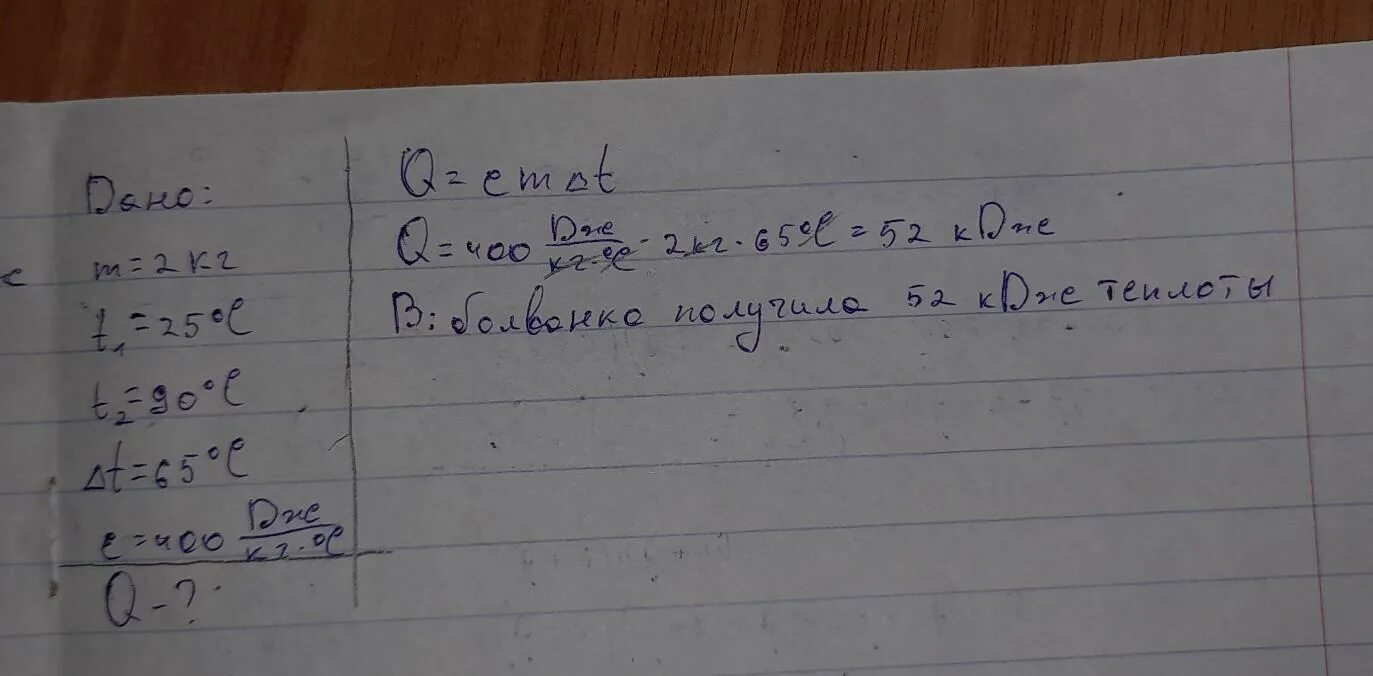 с
Дано:
m=2кг
t₁=25°C
t₂=90°C
Δt=65°C
c=400 Дже/кг·°C
Q-?
Q=cmΔt
Q=400 Дже/кг·°C · 2кг · 65°C = 52 кДже
В: болванка получила 52 кДже теплоты